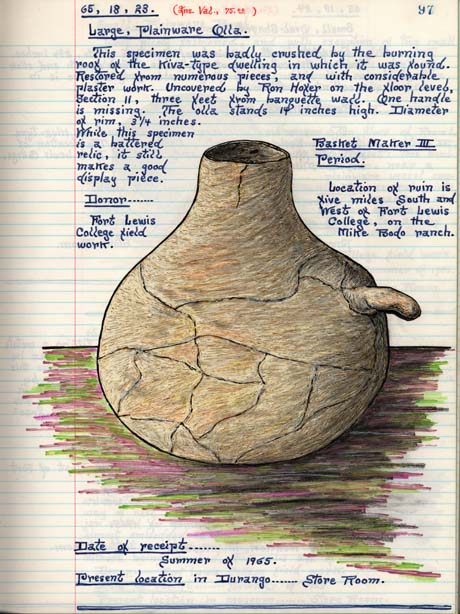 65, 18, 23. (Ins. Val., 75.00)
97
Large, Plainware Olla.
This specimen was badly crushed by the burning
roof of the Kiva-type dwelling in which it was found.
Restored from numerous pieces, and with considerable
plaster work. Uncovered by Ron Hofer on the floor level,
Section II, three feet from banquette wall. One handle
is missing. The olla stands 14 inches high. Diameter
of rim, 3¼ inches.
While this specimen
is a battered
relic, it still
makes a good
display piece.
Donor-------
Fort Lewis
College field
work.
Basket Maker III
Period.
Location of ruin is
five miles South and
West of Fort Lewis
College, on the
Mike Bodo ranch.
Date of receipt-------
Summer of 1965.
Present location in Durango------ Store Room.